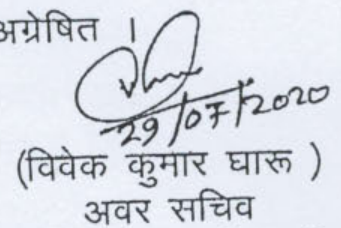 अग्रेषित ।
29/07/2020
(विवेक कुमार घारू )
अवर सचिव